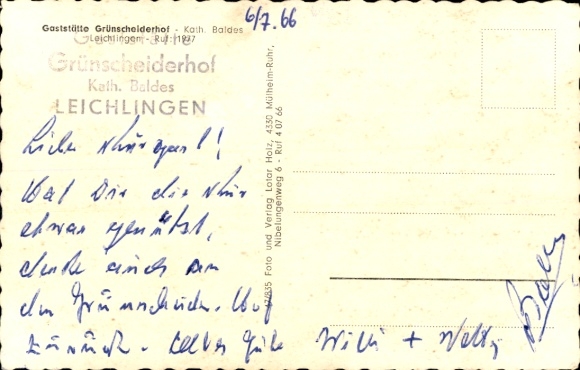 6/7. 66
Gaststätte Grünscheiderhof - Kath. Baldes
Leichlingen - Ruf: 1937
Gaststätte
Grünscheiderhof
Kath. Baldes
LEICHLINGEN
Lieber
Hat Dir die Kur
etwas genützt,
denke auch an
den Grünscheider-Hof
zurück. Alles Gute Willi +
2/835 Foto und Verlag Lotar Holz, 4330 Mülheim-Ruhr,
Nibelungenweg 6 - Ruf 4 07 66